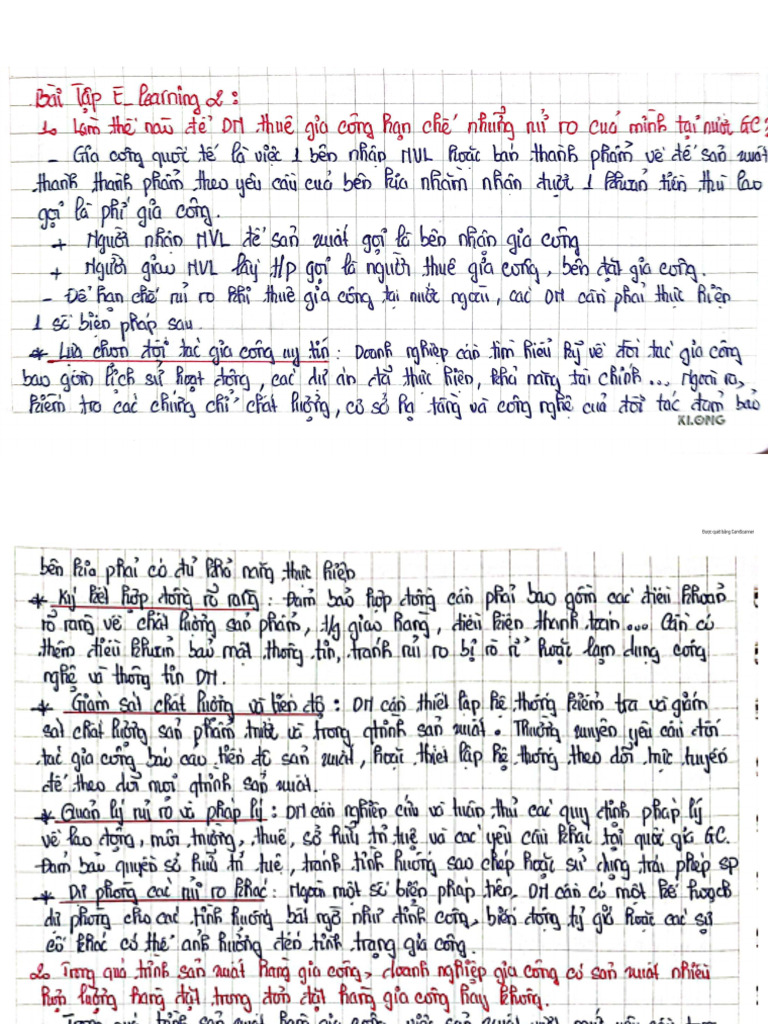 Bài Tập E_learning 2:
1. Làm thế nào để DN thuê gia công hạn chế những rủi ro của mình tại nước GC?
- Gia công quốc tế là việc 1 bên nhập NVL hoặc bán thành phẩm về để sản xuất
thành thành phẩm theo yêu cầu của bên kia nhằm nhận được 1 khoản tiền thù lao
gọi là phí gia công.
+ Người nhận NVL để sản xuất gọi là bên nhận gia công
+ Người giao NVL lấy t/p gọi là người thuê gia công, bên đặt gia công.
- Để hạn chế rủi ro khi thuê gia công tại nước ngoài, các DN cần phải thực hiện
1 số biện pháp sau.
* Lựa chọn đối tác gia công uy tín: Doanh nghiệp cần tìm hiểu kỹ về đối tác gia công
bao gồm lịch sử hoạt động, các dự án đã thực hiện, khả năng tài chính... Ngoài ra,
kiểm tra các chứng chỉ chất lượng, cơ sở hạ tầng và công nghệ của đối tác đảm bảo
KLONG
Được quét bằng CamScanner
bên kia phải có đủ khả năng thực hiện
* Ký kết hợp đồng rõ ràng: Đảm bảo hợp đồng cần phải bao gồm các điều khoản
rõ ràng về chất lượng sản phẩm, t/g giao hàng, điều kiện thanh toán... Cần có
thêm điều khoản bảo mật thông tin, tránh rủi ro bị rò rỉ hoặc lạm dụng công
nghệ và thông tin DN.
* Giám sát chất lượng và tiến độ: DN cần thiết lập hệ thống kiểm tra và giám
sát chất lượng sản phẩm trước và trong qtrình sản xuất. Thường xuyên yêu cầu đối
tác gia công báo cáo tiến độ sản xuất, hoặc thiết lập hệ thống theo dõi trực tuyến
để theo dõi mọi qtrình sản xuất.
* Quản lý rủi ro và pháp lý: DN cần nghiên cứu và tuân thủ các quy định pháp lý
về lao động, môi trường, thuế, sở hữu trí tuệ và các yêu cầu khác tại quốc gia GC.
Đảm bảo quyền sở hữu trí tuệ, tránh tình huống sao chép hoặc sử dụng trái phép sp
* Dự phòng các rủi ro khác: Ngoài một số biện pháp trên. DN cần có một kế hoạch
dự phòng cho các tình huống bất ngờ như đình công, biến động tỷ giá hoặc các sự
cố khác có thể ảnh hưởng đến tình trạng gia công.
2. Trong quá trình sản xuất hàng gia công, doanh nghiệp gia công có sản xuất nhiều
hơn lượng hàng đặt trong đơn đặt hàng gia công hay không.